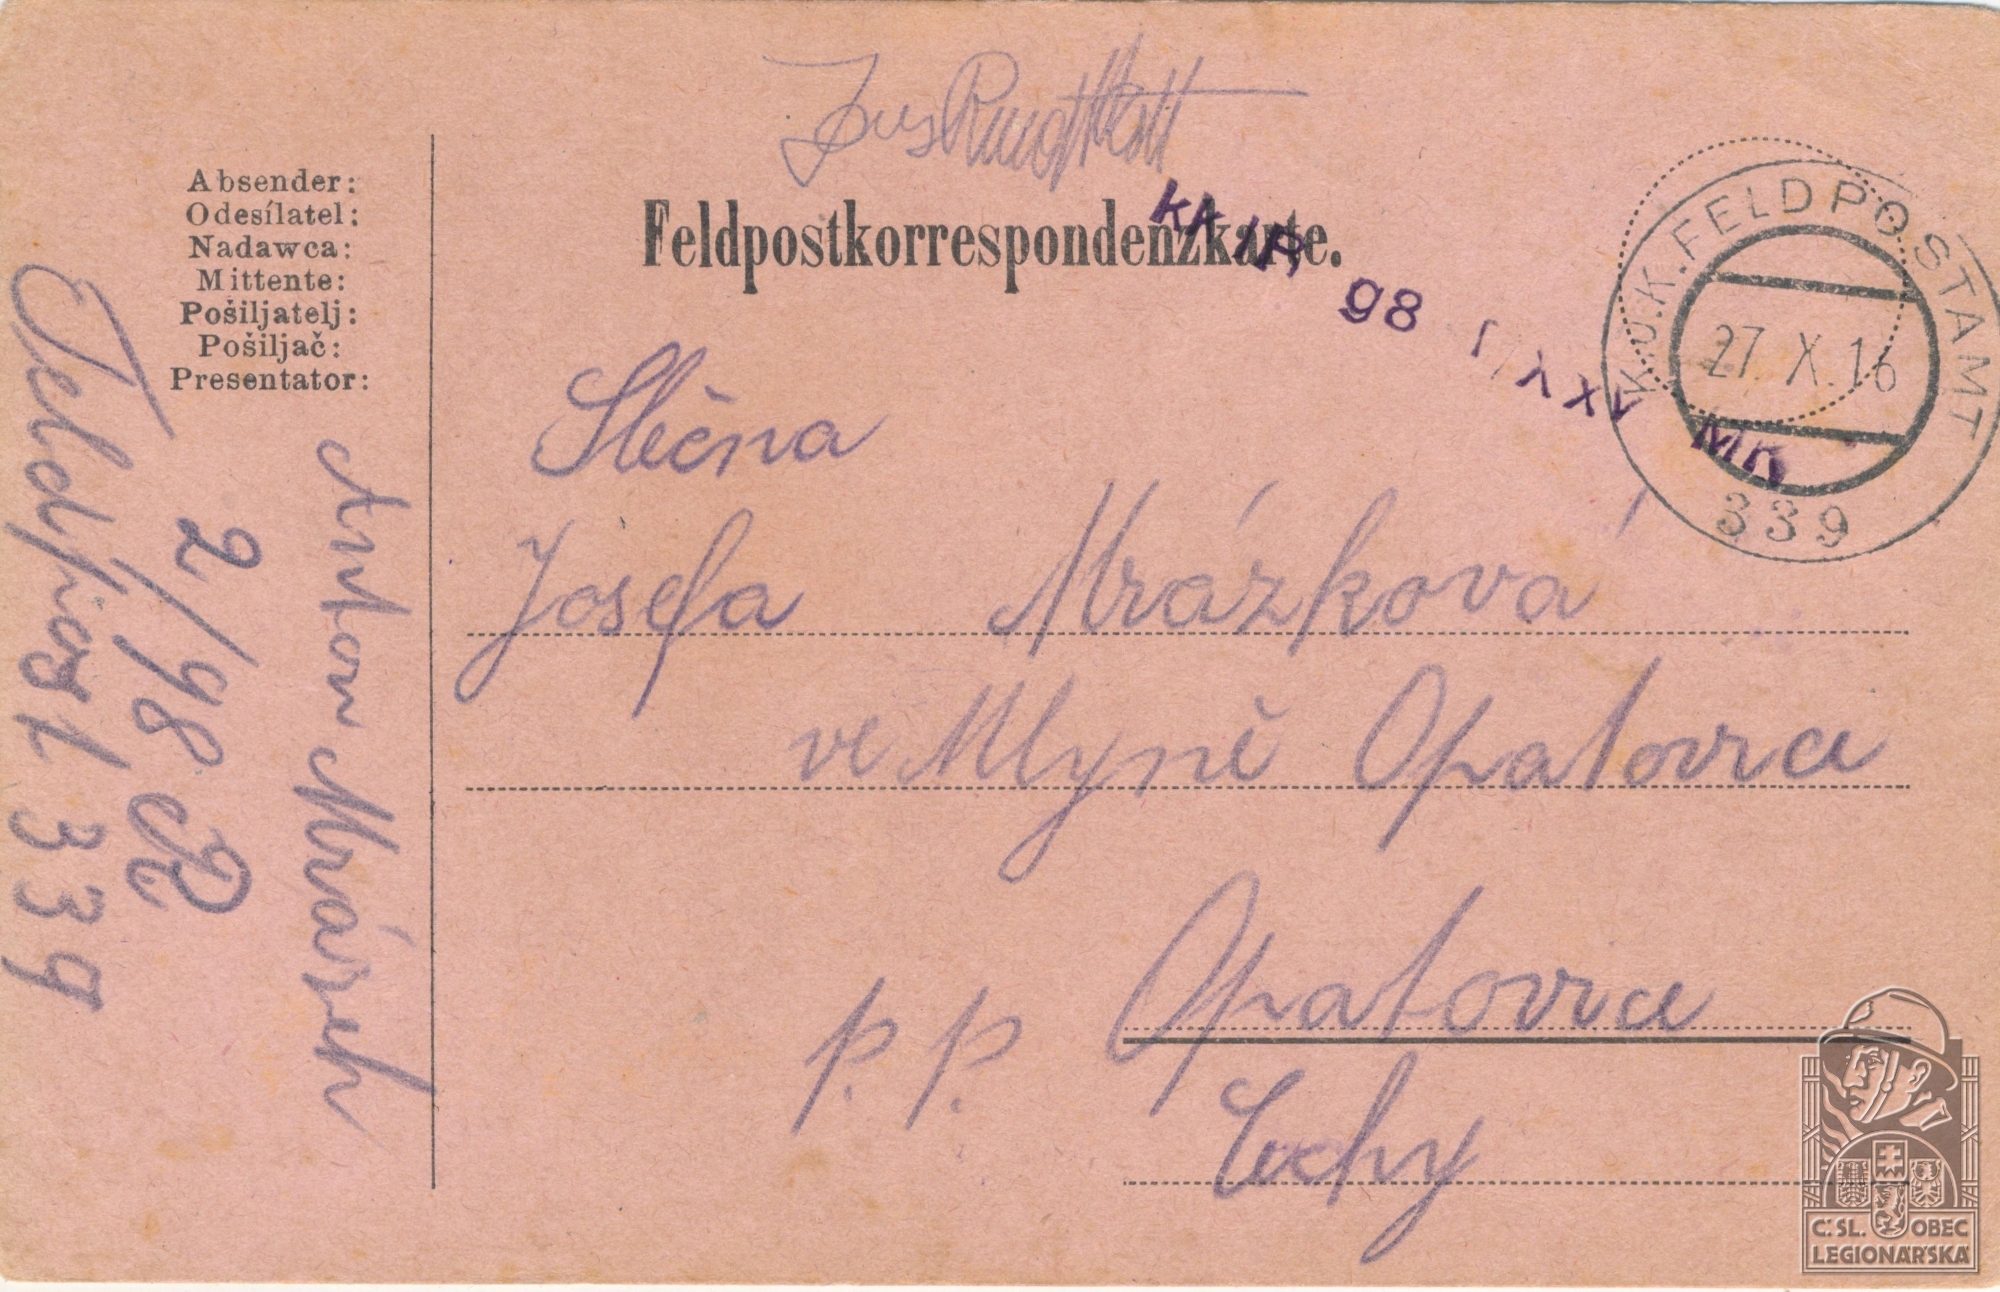 Feldpostkorrespondenzkarte.
Absender:
Odesílatel:
Nadawca:
Mittente:
Pošiljatelj:
Pošiljač:
Presentator:
Anton Mrázek
2/98 IR
Feldpost 339
K.u.K. FELDPOSTAMT
27. X. 16
339
KK IR 98
XXV MK
Slečna
Josefa Mrázkova
ve Mlyně Opatovra
p. p. Opatovra
Čechy
Č.SL. OBEC
LEGIONÁŘSKÁ